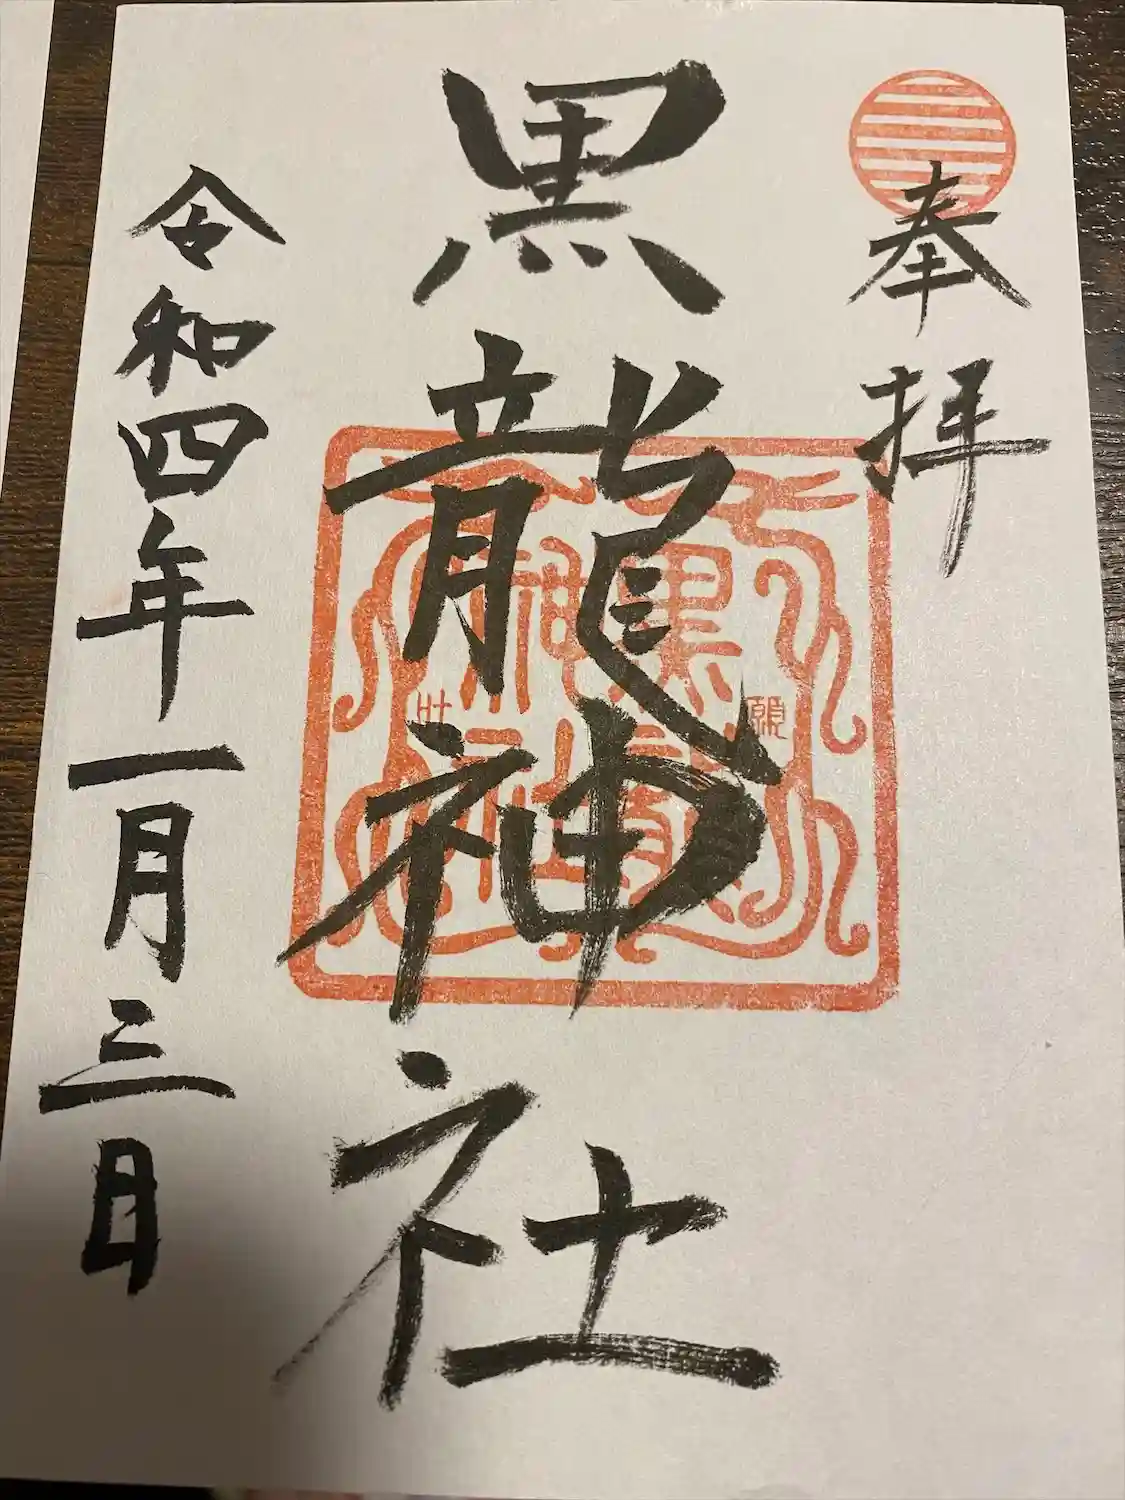 奉拝
黒龍神社
黒龍
神社
願
叶
令和四年一月三日